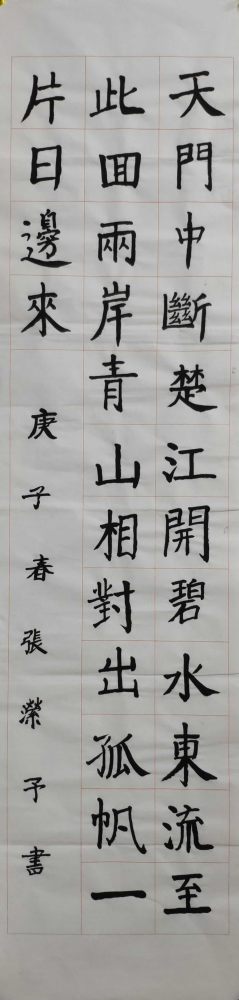 天門中斷楚江開碧水東流至
此回兩岸青山相對出孤帆一
片日邊來
庚子春張榮予書